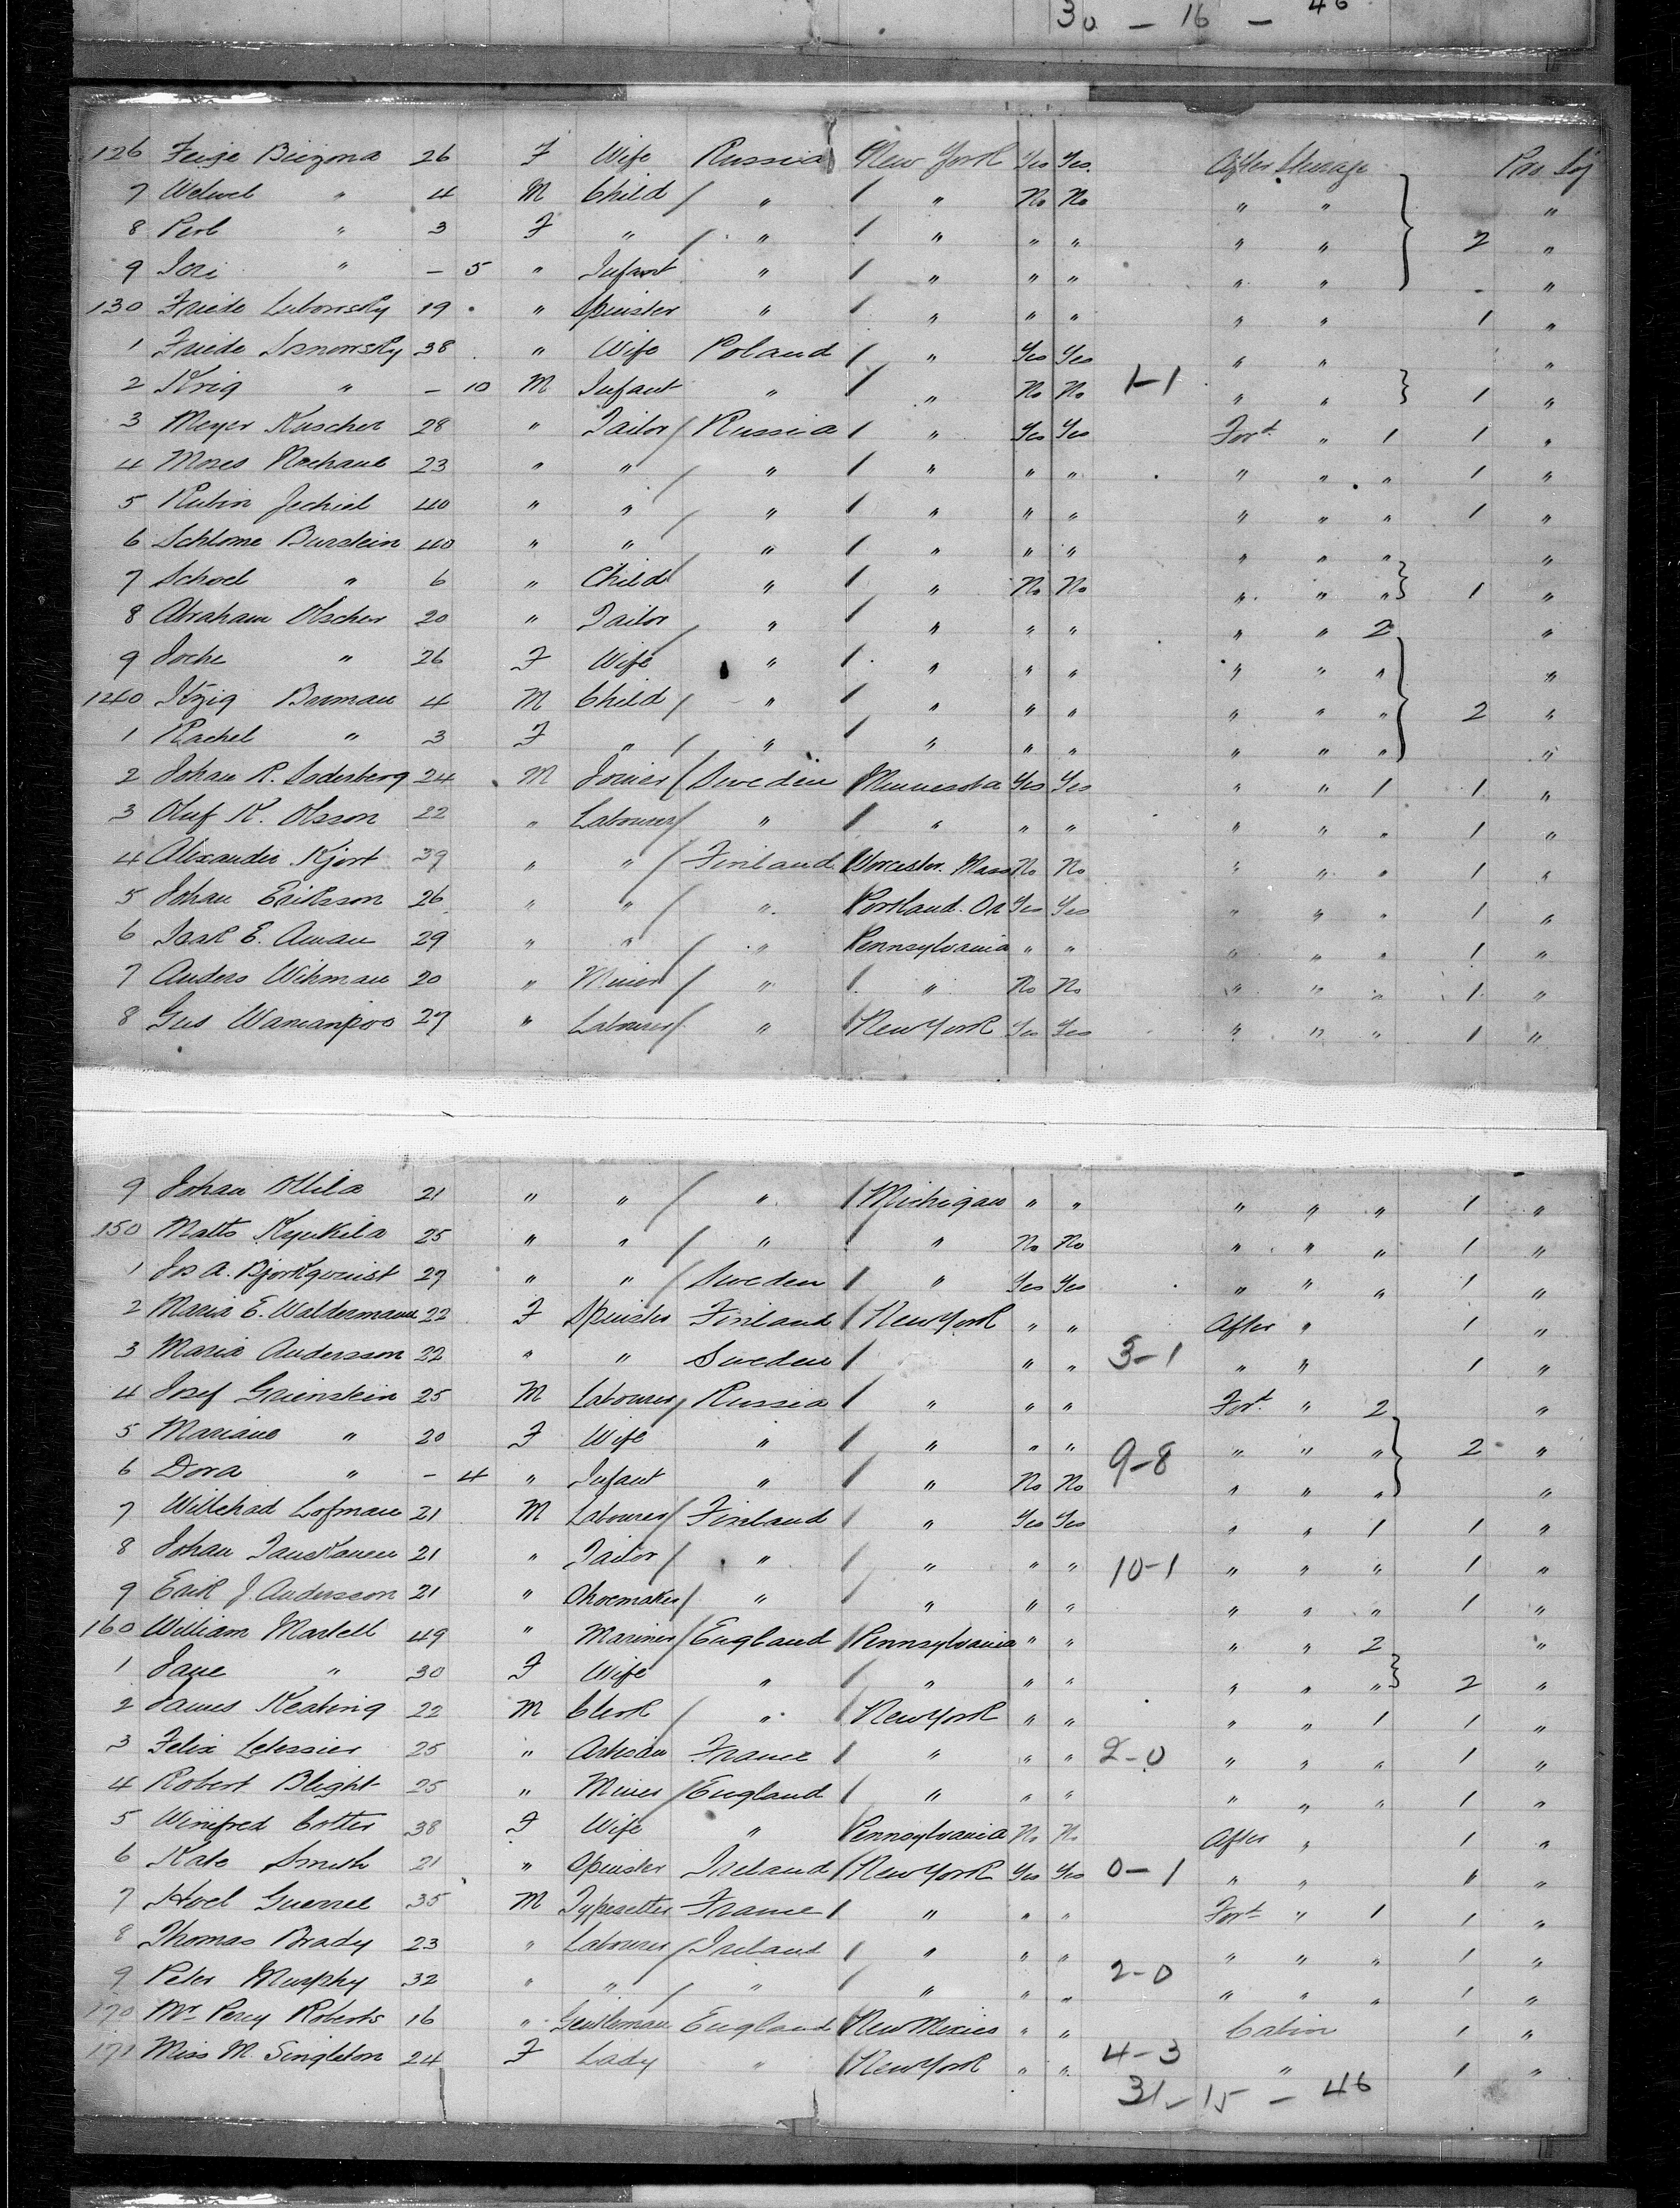 30 — 16 — 46
126 Feige Biezona 26 F Wife Russia New York Yes Yes After Steerage Pro Soj
7 Welwel " 4 M Child " " No No " " "
8 Perl " 3 F " " " " " " " 2 "
9 " — 5 " Infant " " " " " " "
130 Friede Luborrsky 19 " Spinster " " " " " " 1 "
1 Friede 38 " Wife Poland " Yes Yes " " "
2 " — 10 M Infant " " No No 1-1 " " 1 "
3 Meyer Kuscher 28 " Tailor Russia " Yes Yes Ford " 1 1 "
4 Moses 23 " " " " " " " " " 1 "
5 Rubin Jechiel 40 " " " " " " " " " 1 "
6 Schlome Burstein 40 " " " " " " " " " "
7 " 6 " Child " " No No " " " 1 "
8 Abraham Olscher 20 " Tailor " " " " " " 2 "
9 " 26 F Wife " " " " " " " "
140 Itzig Berman 4 M Child " " " " " " " 2 "
1 Rachel " 3 F " " " " " " " " "
2 Johan R. Soderberg 24 M Joiner Sweden Minnesota Yes Yes " " 1 1 "
3 Oluf K. Olsson 22 " Labourer " " " " " " " 1 "
4 Alexander Kjort 39 " " Finland Worcester. Mass No No " " " 1 "
5 Johan Eriksson 26 " " " Portland. Or Yes Yes " " " 1 "
6 Isak E. Aman 29 " " " Pennsylvania " " " " " 1 "
7 Anders Wihman 20 " Miner " " No No " " " 1 "
8 Gus 27 " Labourer " New York Yes Yes " " " 1 "
9 Johan Ollila 21 " " " Michigan " " " " " 1 "
150 Matts 25 " " " " No No " " " 1 "
1 Jos A. Bjorkqvist 27 " " Sweden " Yes Yes " " " 1 "
2 Maria E. Waldermann 22 F Spinster Finland New York " " After " 1 "
3 Maria Andersson 22 " " Sweden " " 3-1 " " 1 "
4 Josef Grienstein 25 M Labourer Russia " " " Ford " 2 "
5 Mariane " 20 F Wife " " " " 9-8 " " " 2 "
6 Dora " — 4 " Infant " " No No " " " "
7 Willehad Lofman 21 M Labourer Finland " Yes Yes " " 1 1 "
8 Johan Tauskanen 21 " Tailor " " " " 10-1 " " " 1 "
9 Erik J. Andersson 21 " Shoemaker " " " " " " " 1 "
160 William Martell 49 " Mariner England Pennsylvania " " " " 2 "
1 Jane " 30 F Wife " " " " " " " 2 "
2 James Keating 22 M Clerk " New York " " " " 1 1 "
3 Felix Letessier 25 " Artisan France " " " 2-0 " " " 1 "
4 Robert Blight 25 " Miner England " " " " " " 1 "
5 Winifred Cotter 38 F Wife " Pennsylvania No No After " 1 "
6 Kate Smith 21 " Spinster Ireland New York Yes Yes 0-1 " " " "
7 Hoel Guerree 35 M Typesetter France " " " Ford " 1 1 "
8 Thomas Brady 23 " Labourer Ireland " " " " " " 1 "
9 Peter Murphy 32 " " " " " " 2-0 " " " 1 "
170 Mr. Percy Roberts 16 " Gentleman England New Mexico " " Cabin 1 "
171 Miss M. Singleton 24 F Lady " New York " " 4-3 " 1 "
31-15 - 46